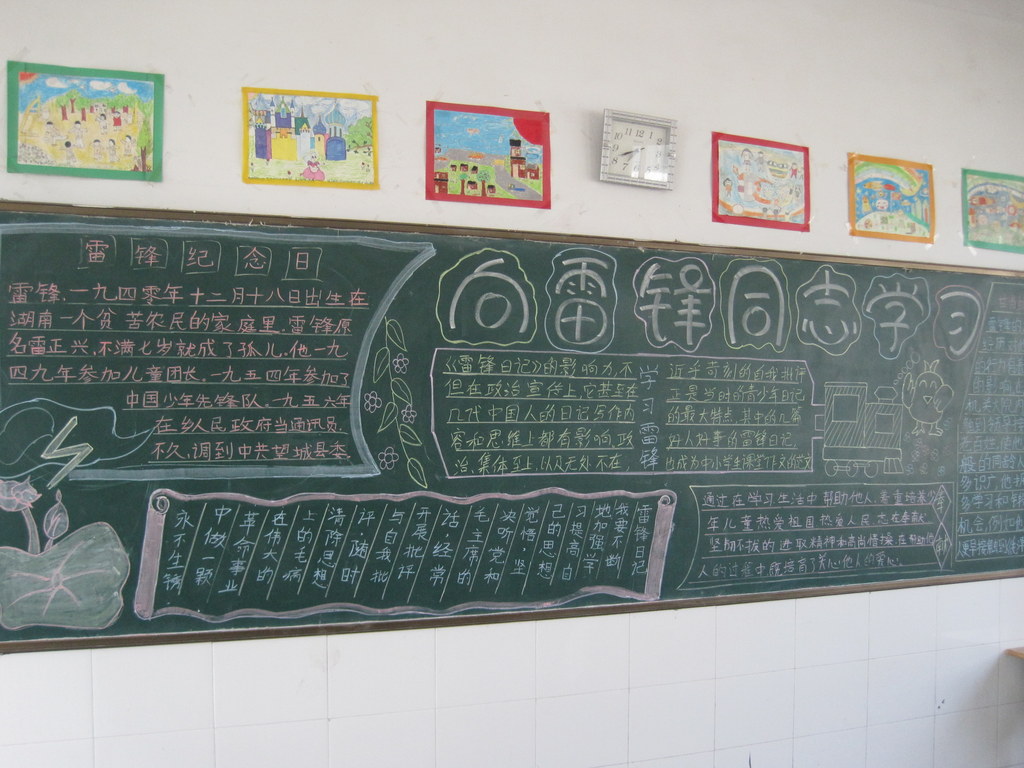 雷锋纪念日
雷锋,一九四零年十二月十八日出生在
湖南一个贫苦农民的家庭里,雷锋原
名雷正兴,不满七岁就成了孤儿,他一九
四九年参加儿童团长,一九五四年参加了
中国少年先锋队,一九五六年
在乡人民政府当通讯员,
不久,调到中共望城县委
向雷锋同志学习
《雷锋日记》的影响力,不
但在政治宣传上,它甚至在
几代中国人的日记写作内
容和思维上都有影响,政
治,集体至上,以及无处不在,
学习雷锋
近乎苛刻的自我批评
正是当时的青少年日记
的最大特点,其中的几篇
好人好事的雷锋日记
也成为中小学生课学作文的范文
雷锋日记
我要不断
地加强学
习提高自
己的思想
觉悟,坚
决听党和
毛主席的
话,经常
开展批评
与自我批
评,随时
清除思想
上的毛病
在伟大的
革命事业
中做一颗
永不生锈
通过在学习生活中帮助他人,着重培养少
年儿童热爱祖国热爱人民,志在奉献
坚韧不拔的进取精神和高尚情操,在帮助他
人的过程中能培育了关心他人的爱心。
10 11 12 1
9
8 7 6